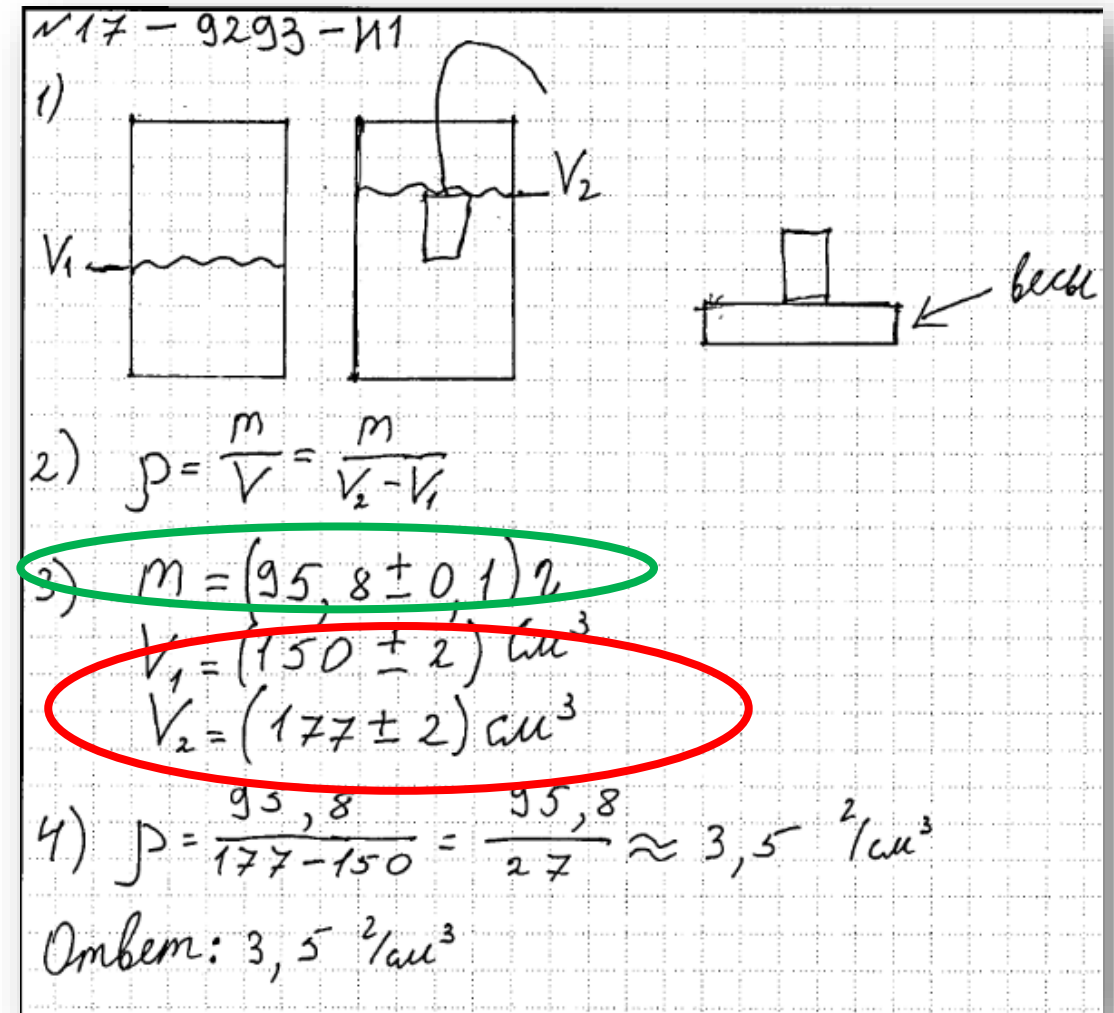 №17 – 9293 – И1
1)
V₁
V₂
весы
2) ρ = m/V = m/(V₂ – V₁)
3) m = (95,8 ± 0,1) г
V₁ = (150 ± 2) см³
V₂ = (177 ± 2) см³
4) ρ = 95,8/(177–150) = 95,8/27 ≈ 3,5 г/см³
Ответ: 3,5 г/см³